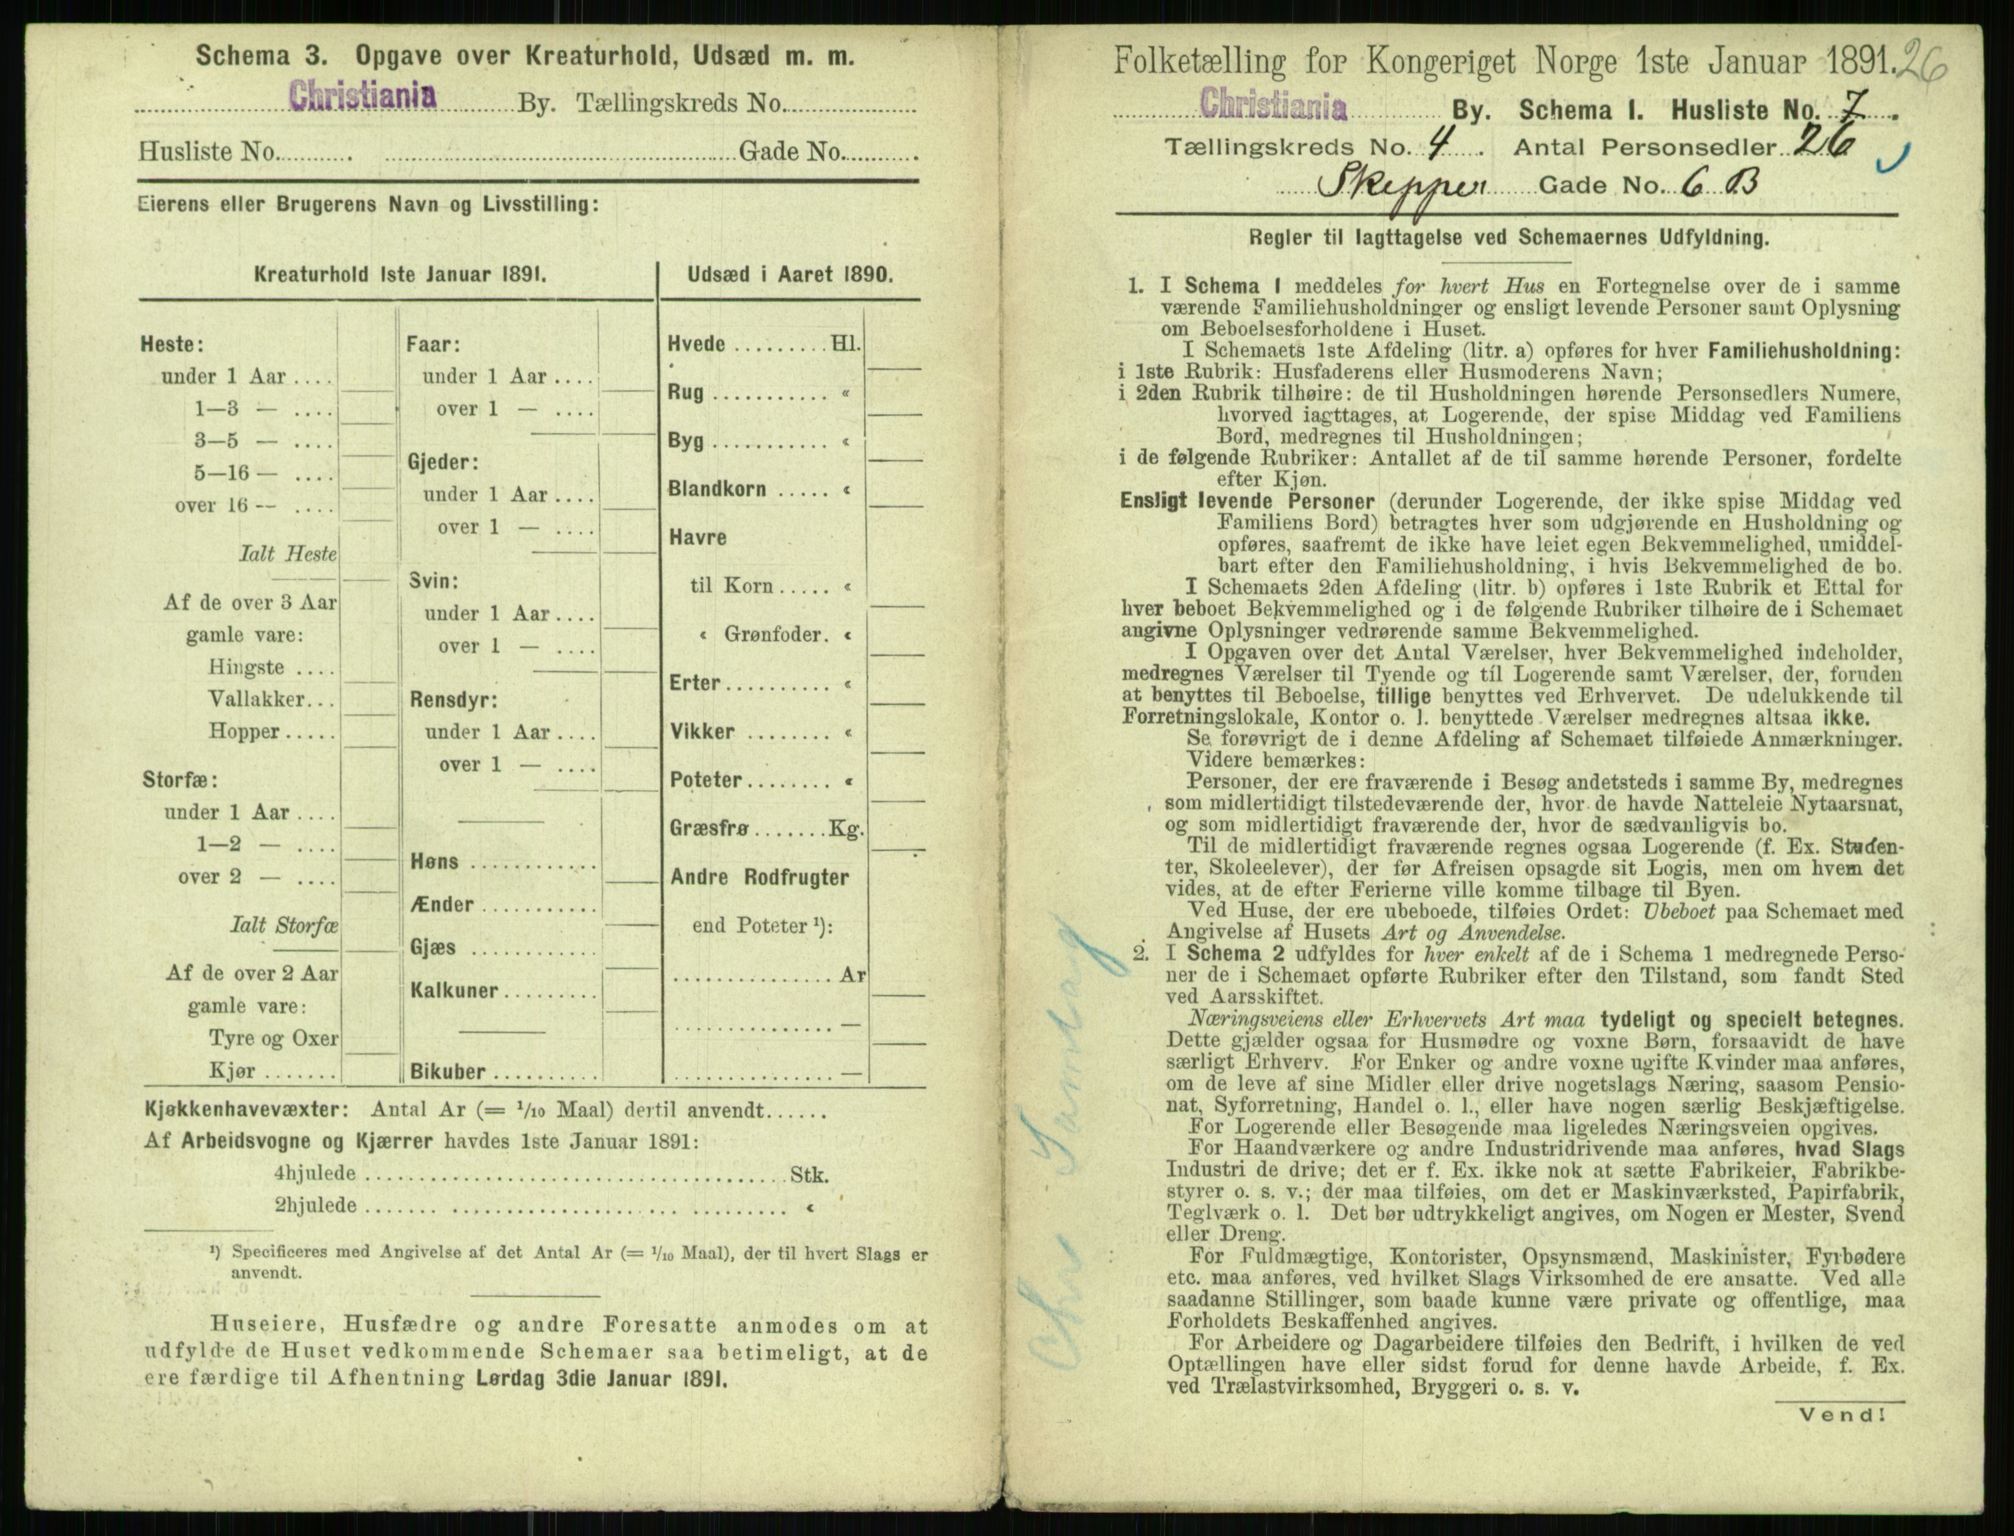 Schema 3. Opgave over Kreaturhold, Udsæd m. m.
Christiania By. Tællingskreds No.
Husliste No. Gade No.
Eierens eller Brugerens Navn og Livsstilling:
Kreaturhold 1ste Januar 1891.
Heste:
under 1 Aar ....
1—3 — ....
3—5 — ....
5—16 — ....
over 16 — ....
Ialt Heste
Af de over 3 Aar
gamle vare:
Hingste ....
Vallakker...
Hopper .....
Storfæ:
under 1 Aar ....
1—2 — ....
over 2 — ....
Ialt Storfæ
Af de over 2 Aar
gamle vare:
Tyre og Oxer
Kjør .......
Faar:
under 1 Aar ....
over 1 — ....
Gjeder:
under 1 Aar ....
over 1 — ....
Svin:
under 1 Aar ....
over 1 — ....
Rensdyr:
under 1 Aar ....
over 1 — ....
Høns ...........
Ænder ...........
Gjæs ...........
Kalkuner.........
Bikuber ..........
Udsæd i Aaret 1890.
Hvede ......... Hl.
Rug ........... «
Byg ........... «
Blandkorn ..... «
Havre
til Korn ..... «
« Grønfoder. «
Erter.......... «
Vikker ........ «
Poteter........ «
Græsfrø ....... Kg.
Andre Rodfrugter
end Poteter ¹):
............... Ar
............... —
............... —
Kjøkkenhavevæxter: Antal Ar (= 1/10 Maal) dertil anvendt......
Af Arbeidsvogne og Kjærrer havdes 1ste Januar 1891:
4hjulede ....................................... Stk.
2hjulede ....................................... «
¹) Specificeres med Angivelse af det Antal Ar (= 1/10 Maal), der til hvert Slags er
anvendt.
Huseiere, Husfædre og andre Foresatte anmodes om at
udfylde de Huset vedkommende Schemaer saa betimeligt, at de
ere færdige til Afhentning Lørdag 3die Januar 1891.
Folketælling for Kongeriget Norge 1ste Januar 1891. 26
Christiania By. Schema I. Husliste No. 7.
Tællingskreds No. 4. Antal Personsedler 26
Skepper Gade No. 6 B
Regler til Iagttagelse ved Schemaernes Udfyldning.
1. I Schema 1 meddeles for hvert Hus en Fortegnelse over de i samme
værende Familiehusholdninger og ensligt levende Personer samt Oplysning
om Beboelsesforholdene i Huset.
I Schemaets 1ste Afdeling (litr. a) opføres for hver Familiehusholdning:
i 1ste Rubrik: Husfaderens eller Husmoderens Navn;
i 2den Rubrik tilhøire: de til Husholdningen hørende Personsedlers Numere,
hvorved iagttages, at Logerende, der spise Middag ved Familiens
Bord, medregnes til Husholdningen;
i de følgende Rubriker: Antallet af de til samme hørende Personer, fordelte
efter Kjøn.
Ensligt levende Personer (derunder Logerende, der ikke spise Middag ved
Familiens Bord) betragtes hver som udgjørende en Husholdning og
opføres, saafremt de ikke have leiet egen Bekvemmelighed, umiddel-
bart efter den Familiehusholdning, i hvis Bekvemmelighed de bo.
I Schemaets 2den Afdeling (litr. b) opføres i 1ste Rubrik et Ettal for
hver beboet Bekvemmelighed og i de følgende Rubriker tilhøire de i Schemaet
angivne Oplysninger vedrørende samme Bekvemmelighed.
I Opgaven over det Antal Værelser, hver Bekvemmelighed indeholder,
medregnes Værelser til Tyende og til Logerende samt Værelser, der, foruden
at benyttes til Beboelse, tillige benyttes ved Erhvervet. De udelukkende til
Forretningslokale, Kontor o. l. benyttede Værelser medregnes altsaa ikke.
Se forøvrigt de i denne Afdeling af Schemaet tilføiede Anmærkninger.
Videre bemærkes:
Personer, der ere fraværende i Besøg andetsteds i samme By, medregnes
som midlertidigt tilstedeværende der, hvor de havde Natteleie Nytaarsnat,
og som midlertidigt fraværende der, hvor de sædvanligvis bo.
Til de midlertidigt fraværende regnes ogsaa Logerende (f. Ex. Studen-
ter, Skoleelever), der før Afreisen opsagde sit Logis, men om hvem det
vides, at de efter Ferierne ville komme tilbage til Byen.
Ved Huse, der ere ubeboede, tilføies Ordet: Ubeboet paa Schemaet med
Angivelse af Husets Art og Anvendelse.
2. I Schema 2 udfyldes for hver enkelt af de i Schema 1 medregnede Perso-
ner de i Schemaet opførte Rubriker efter den Tilstand, som fandt Sted
ved Aarsskiftet.
Næringsveiens eller Erhvervets Art maa tydeligt og specielt betegnes.
Dette gjælder ogsaa for Husmødre og voxne Børn, forsaavidt de have
særligt Erhverv. For Enker og andre voxne ugifte Kvinder maa anføres,
om de leve af sine Midler eller drive nogetslags Næring, saasom Pensio-
nat, Syforretning, Handel o. l., eller have nogen særlig Beskjæftigelse.
For Logerende eller Besøgende maa ligeledes Næringsveien opgives.
For Haandværkere og andre Industridrivende maa anføres, hvad Slags
Industri de drive; det er f. Ex. ikke nok at sætte Fabrikeier, Fabrikbe-
styrer o. s. v.; der maa tilføies, om det er Maskinværksted, Papirfabrik,
Teglværk o. l. Det bør udtrykkeligt angives, om Nogen er Mester, Svend
eller Dreng.
For Fuldmægtige, Kontorister, Opsynsmænd, Maskinister, Fyrbødere
etc. maa anføres, ved hvilket Slags Virksomhed de ere ansatte. Ved alle
saadanne Stillinger, som baade kunne være private og offentlige, maa
Forholdets Beskaffenhed angives.
For Arbeidere og Dagarbeidere tilføies den Bedrift, i hvilken de ved
Optællingen have eller sidst forud for denne havde Arbeide, f. Ex.
ved Trælastvirksomhed, Bryggeri o. s. v.
Vend!